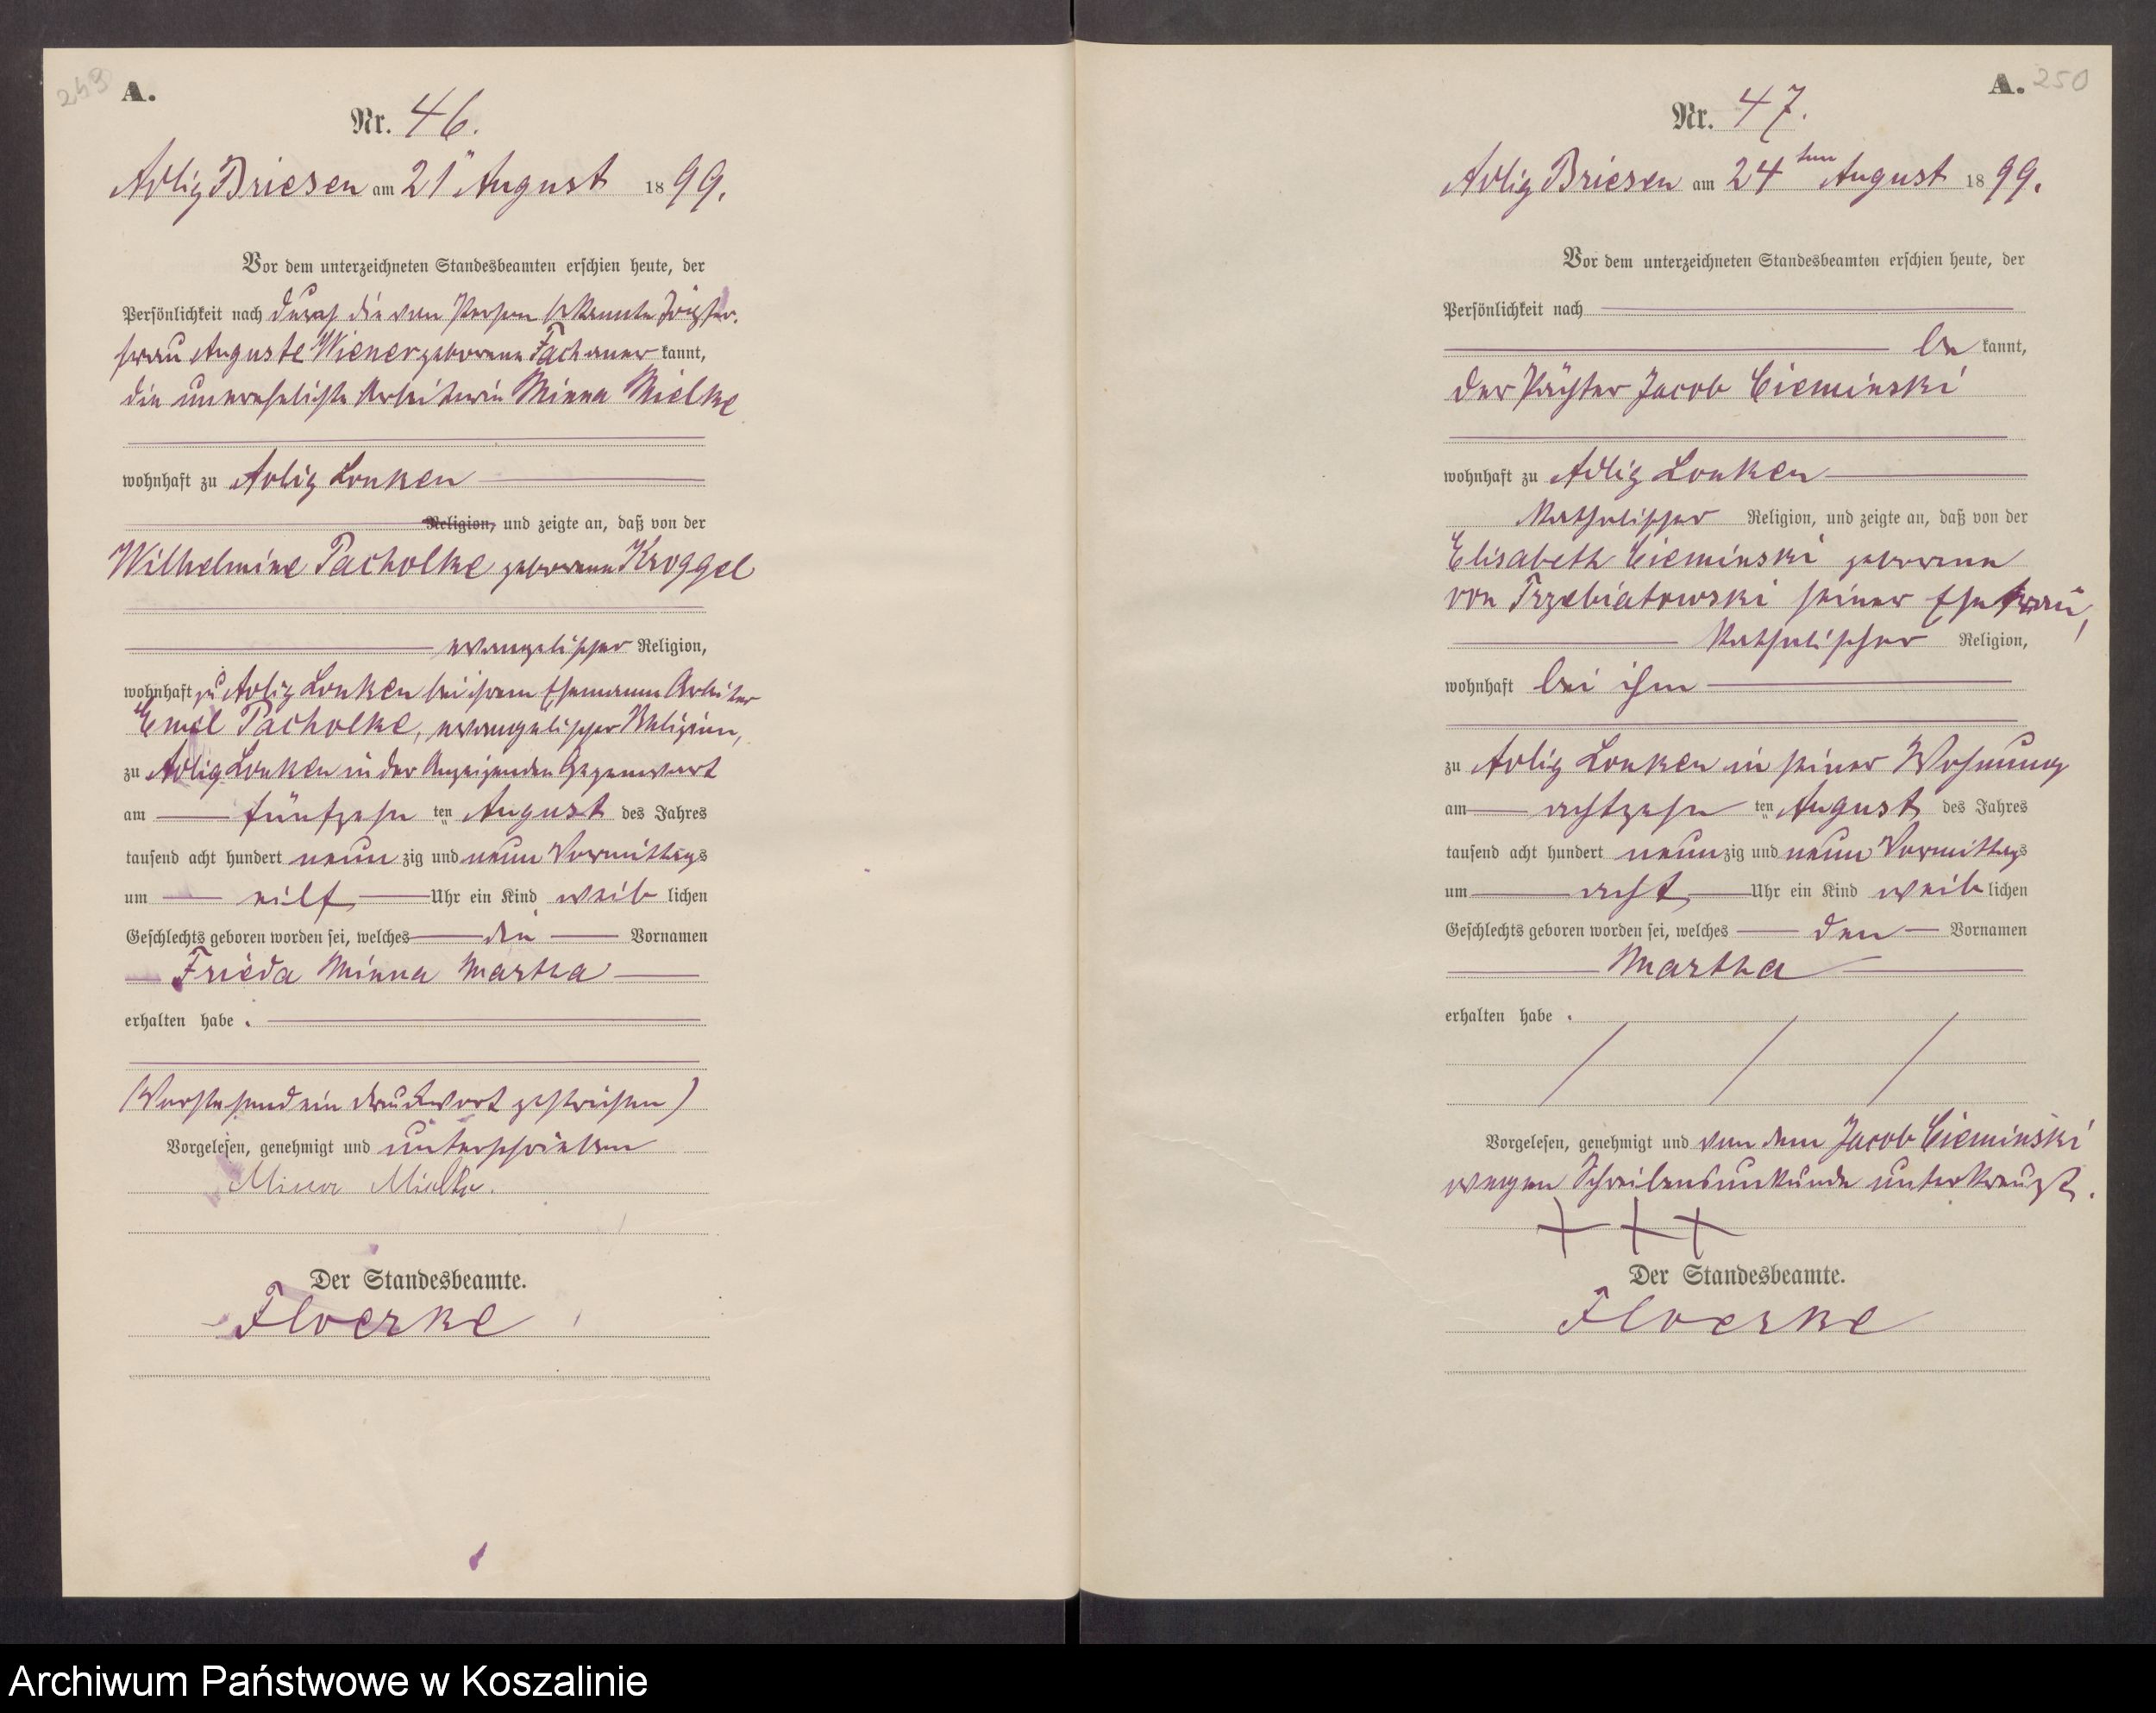 249
A.
Nr. 46.
Adlig Briesen am 21ten August 1899.
Vor dem unterzeichneten Standesbeamten erschien heute, der
Persönlichkeit nach durch die von Person bekannte
frau Auguste Wiener geborene kannt,
die unverehelichte Arbeiterin Minna Mielke
wohnhaft zu Adlig Lonken
Religion, und zeigte an, daß von der
Wilhelmine Pacholke geborene Kroggel
evangelischer Religion,
wohnhaft zu Adlig Lonken bei ihrem Ehemann Arbeiter
Emil Pacholke, evangelischer Religion,
zu Adlig Lonken in der Anzeigenden Gegenwart
am fünfzehn ten August des Jahres
tausend acht hundert neun zig und neun Vormittags
um eilf Uhr ein Kind weib lichen
Geschlechts geboren worden sei, welches die Vornamen
Frieda Minna Martha
erhalten habe.
(Vorstehend ein Druckwort gestrichen)
Vorgelesen, genehmigt und unterschrieben
Minna Mielke.
Der Standesbeamte.
Floerke
A. 250
Nr. 47.
Adlig Briesen am 24ten August 1899.
Vor dem unterzeichneten Standesbeamten erschien heute, der
Persönlichkeit nach
be kannt,
der Pächter Jacob Cieminski
wohnhaft zu Adlig Lonken
katholischer Religion, und zeigte an, daß von der
Elisabeth Cieminski geborene
von Trzebiatowski seiner Ehefrau,
katholischer Religion,
wohnhaft bei ihm
zu Adlig Lonken in seiner Wohnung
am achtzehn ten August des Jahres
tausend acht hundert neun zig und neun Vormittags
um acht Uhr ein Kind weib lichen
Geschlechts geboren worden sei, welches den Vornamen
Martha
erhalten habe.
Vorgelesen, genehmigt und von dem Jacob Cieminski
wegen Schreibensunkunde unterkreuzt.
+ + +
Der Standesbeamte.
Floerke
Archiwum Państwowe w Koszalinie